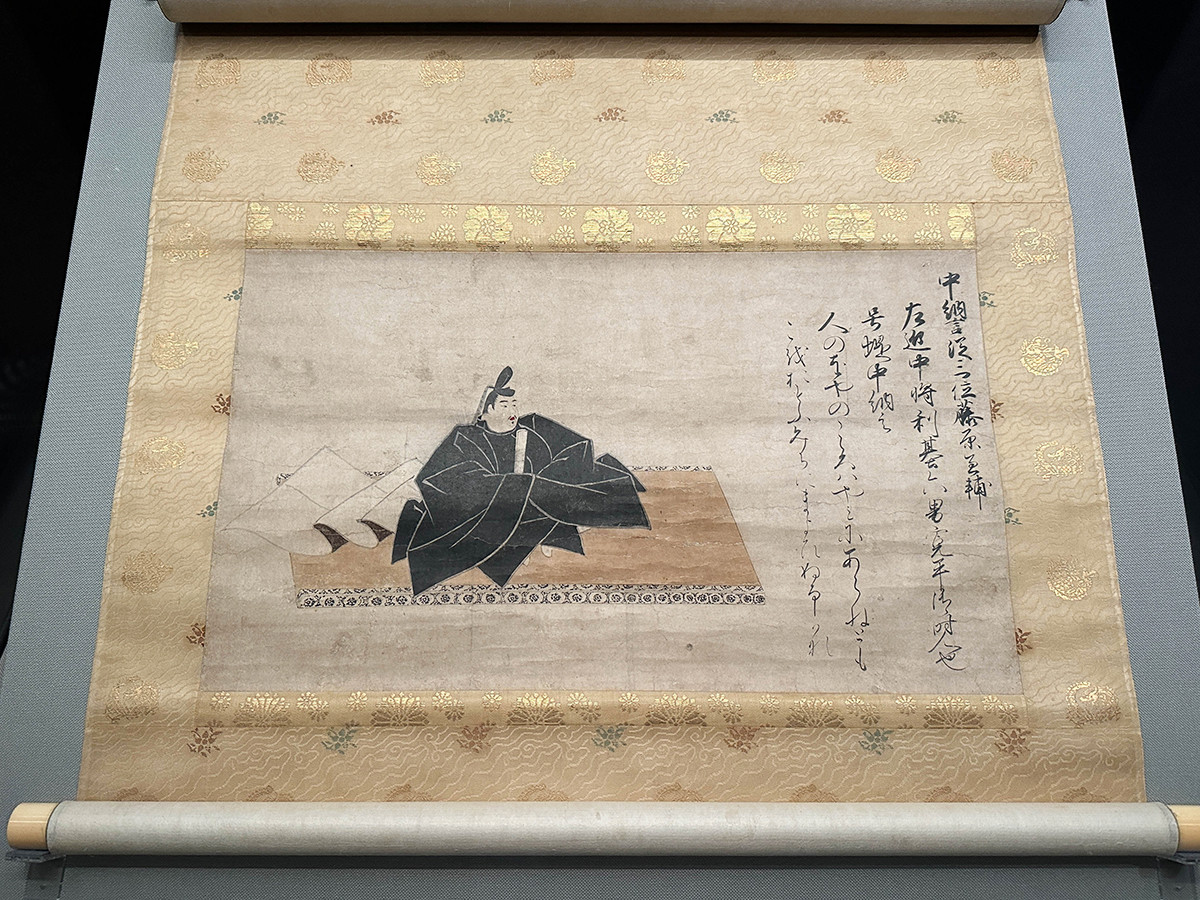 中納言従三位藤原兼輔
左近中将利基六男寛平御時人也
号堤中納言
人のおやのこゝろはやみにあらねとも
こをおもふみちにまよひぬるかな